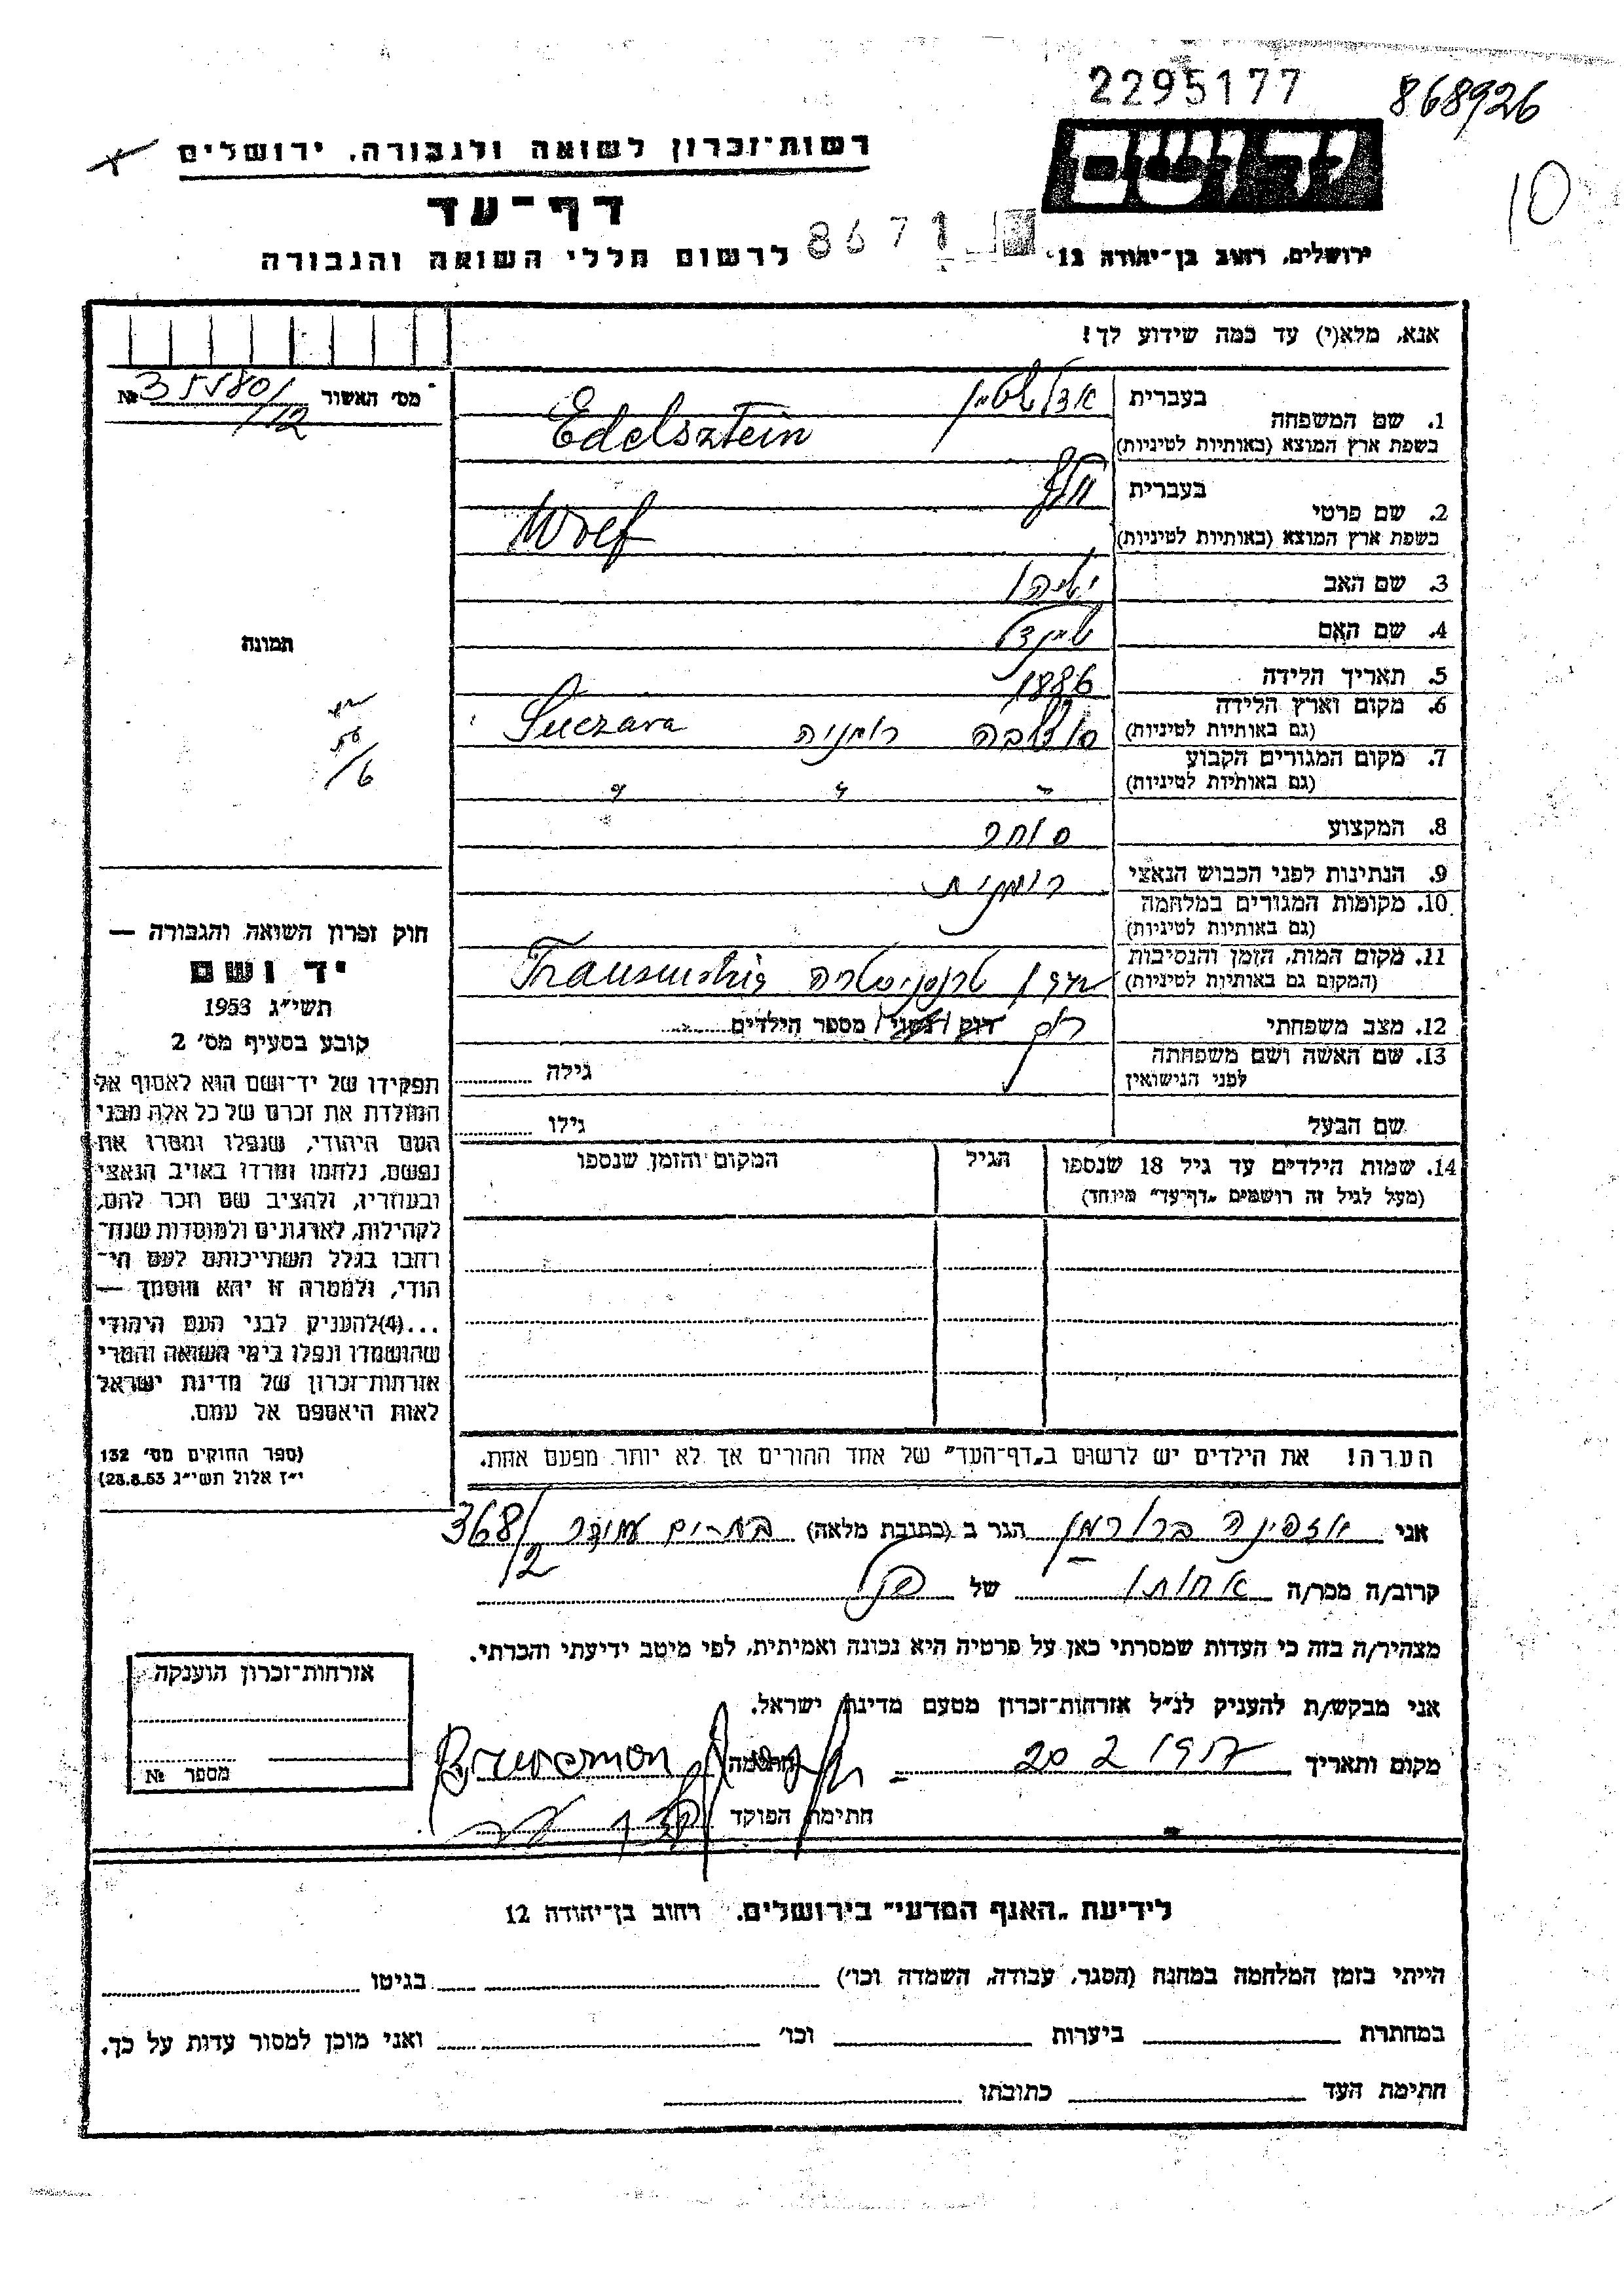 2295177
868926
רשות־זכרון לשואה ולגבורה, ירושלים
יד ושם
10
דף־עד
8671
לרשום חללי השואה והגבורה
ירושלים, רחוב בן־יהודה 12
אנא, מלא(י) עד כמה שידוע לך!
מס׳ האשור 35580/12 №
1. שם המשפחה בעברית אדלשטיין
בשפת ארץ המוצא (באותיות לטיניות) Edelsztein
2. שם פרטי בעברית וולף
בשפת ארץ המוצא (באותיות לטיניות) Wolf
3. שם האב
4. שם האם שיינדל
תמונה
5. תאריך הלידה 1886
6. מקום וארץ הלידה (גם באותיות לטיניות) רומניה Suczava
7. מקום המגורים הקבוע (גם באותיות לטיניות) " " "
8. המקצוע סוחר
9. הנתינות לפני הכבוש הנאצי רומנית
10. מקומות המגורים במלחמה (גם באותיות לטיניות)
11. מקום המות, הזמן והנסיבות (המקום גם באותיות לטיניות) טרנסניסטריה
12. מצב משפחתי רווק / נשוי / מספר הילדים
13. שם האשה ושם משפחתה לפני הנישואין גילה
שם הבעל גילו
14. שמות הילדים עד גיל 18 שנספו הגיל המקום והזמן שנספו
(מעל לגיל זה רושמים „דף־עד״ מיוחד)
חוק זכרון השואה והגבורה —
יד ושם
תשי״ג 1953
קובע בסעיף מס׳ 2
תפקידו של יד־ושם הוא לאסוף אל
המולדת את זכרם של כל אלה מבני
העם היהודי, שנפלו ומסרו את
נפשם, נלחמו ומרדו באויב הנאצי
ובעוזריו, ולהציב שם וזכר להם,
לקהילות, לארגונים ולמוסדות שנח־
רבו בגלל השתייכותם לעם הי־
הודי, ולמטרה זו יהא מוסמך —
...(4)להעניק לבני העם היהודי
שהושמדו ונפלו בימי השואה והמרי
אזרחות־זכרון של מדינת ישראל
לאות היאספם אל עמם.
(ספר החוקים מס׳ 132
י״ז אלול תשי״ג 28.8.53)
הערה! את הילדים יש לרשום ב„דף־העד״ של אחד ההורים אך לא יותר מפעם אחת.
אני ברורמן הגר ב (כתובת מלאה) בת־ים 368/2
קרוב/ה מכר/ה אחותו של
מצהיר/ה בזה כי העדות שמסרתי כאן על פרטיה היא נכונה ואמיתית, לפי מיטב ידיעתי והכרתי.
אני מבקש/ת להעניק לנ״ל אזרחות־זכרון מטעם מדינת ישראל.
מקום ותאריך 20 2 חתימה
חתימת הפוקד
אזרחות־זכרון הוענקה
מספר №
לידיעת „האגף המדעי״ בירושלים, רחוב בן־יהודה 12
הייתי בזמן המלחמה במחנה (הסגר, עבודה, השמדה וכו׳) בגיטו
במחתרת ביערות וכו׳ ואני מוכן למסור עדות על כך.
חתימת העד כתובתו